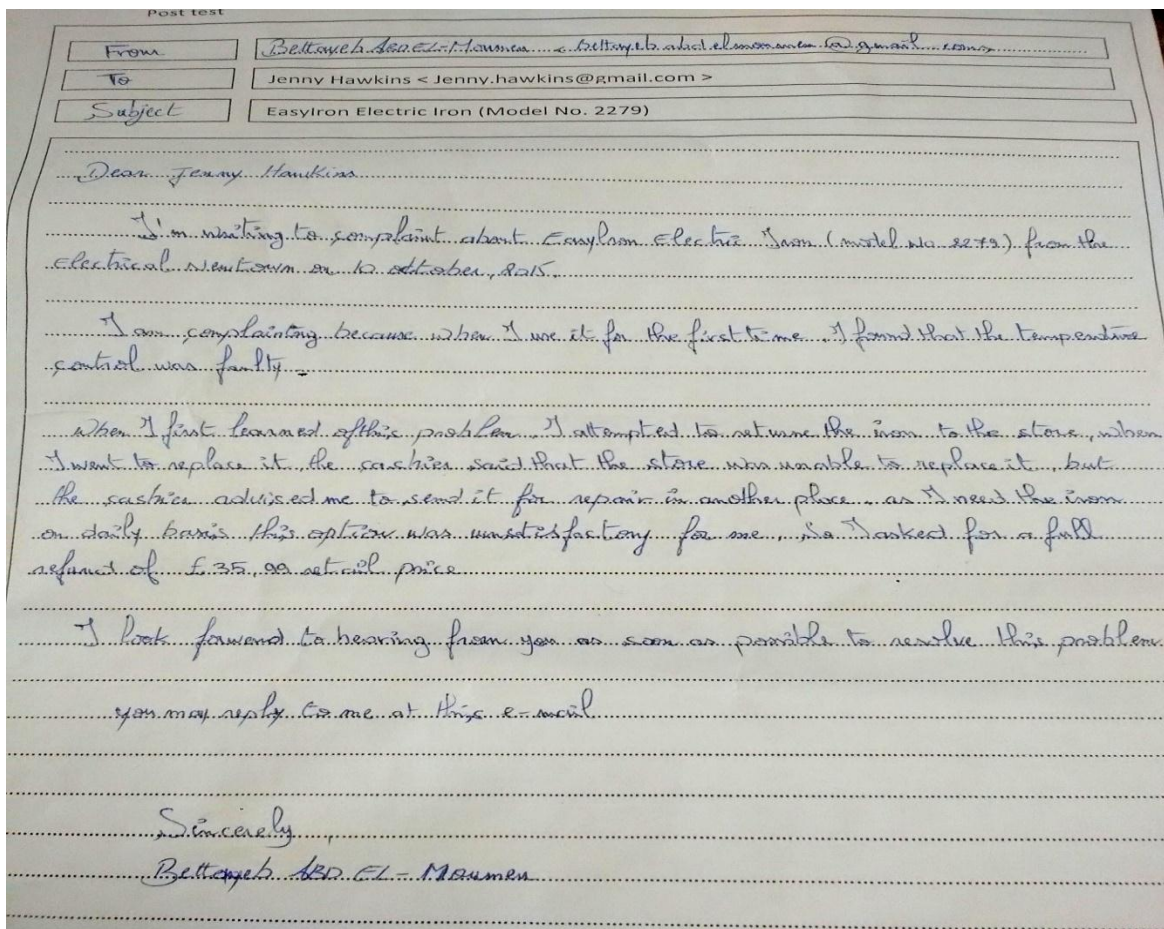 Post test
From Bettayeb ABD EL-Moumen < bettayeb.abdelmoumen@gmail.com>
To Jenny Hawkins < Jenny.hawkins@gmail.com >
Subject EasyIron Electric Iron (Model No. 2279)
Dear Jenny Hawkins
I'm writing to complaint about EasyIron Electric Iron (model No 2279) from the
electrical Newtown on 10 october, 2015.
I am complainting because when I use it for the first time, I found that the temperature
control was faulty.
When I first learned of this problem. I attempted to returne the iron to the store, when
I went to replace it, the cashier said that the store was unable to replace it, but
the cashier advised me to send it for repair in another place. as I need the iron
on daily basis this option was unsatisfactory for me, So I asked for a full
refund of £35,99 retail price
I look forward to hearing from you as soon as possible to resolve this problem
you may reply to me at this e-mail
Sincerely,
Bettayeb ABD EL-Moumen